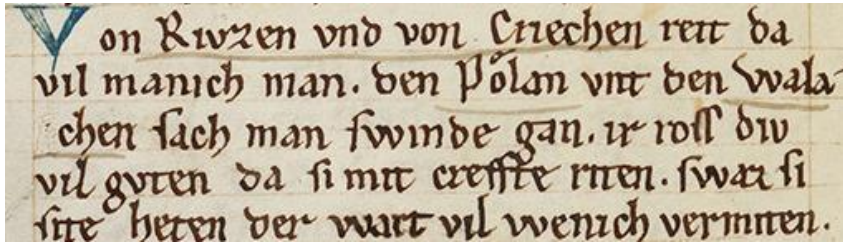 Von Rivzen vnd von Criechen reit da
vil manich man. den Polan vnt den Wala-
chen sach man swinde gan. ir ross div
vil gvten da si mit creffte riten. swaz si
site heten der wart vil wenich vermiten.